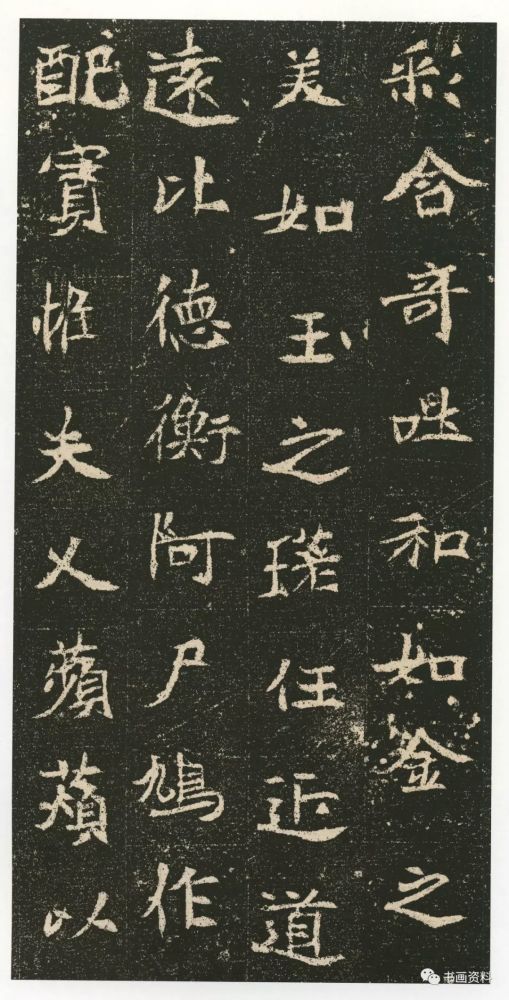 彩含奇吐和如金之
美如玉之瑛任近道
遠比德衡阿尸鳩作
配實惟夫人蘋以
书画资料